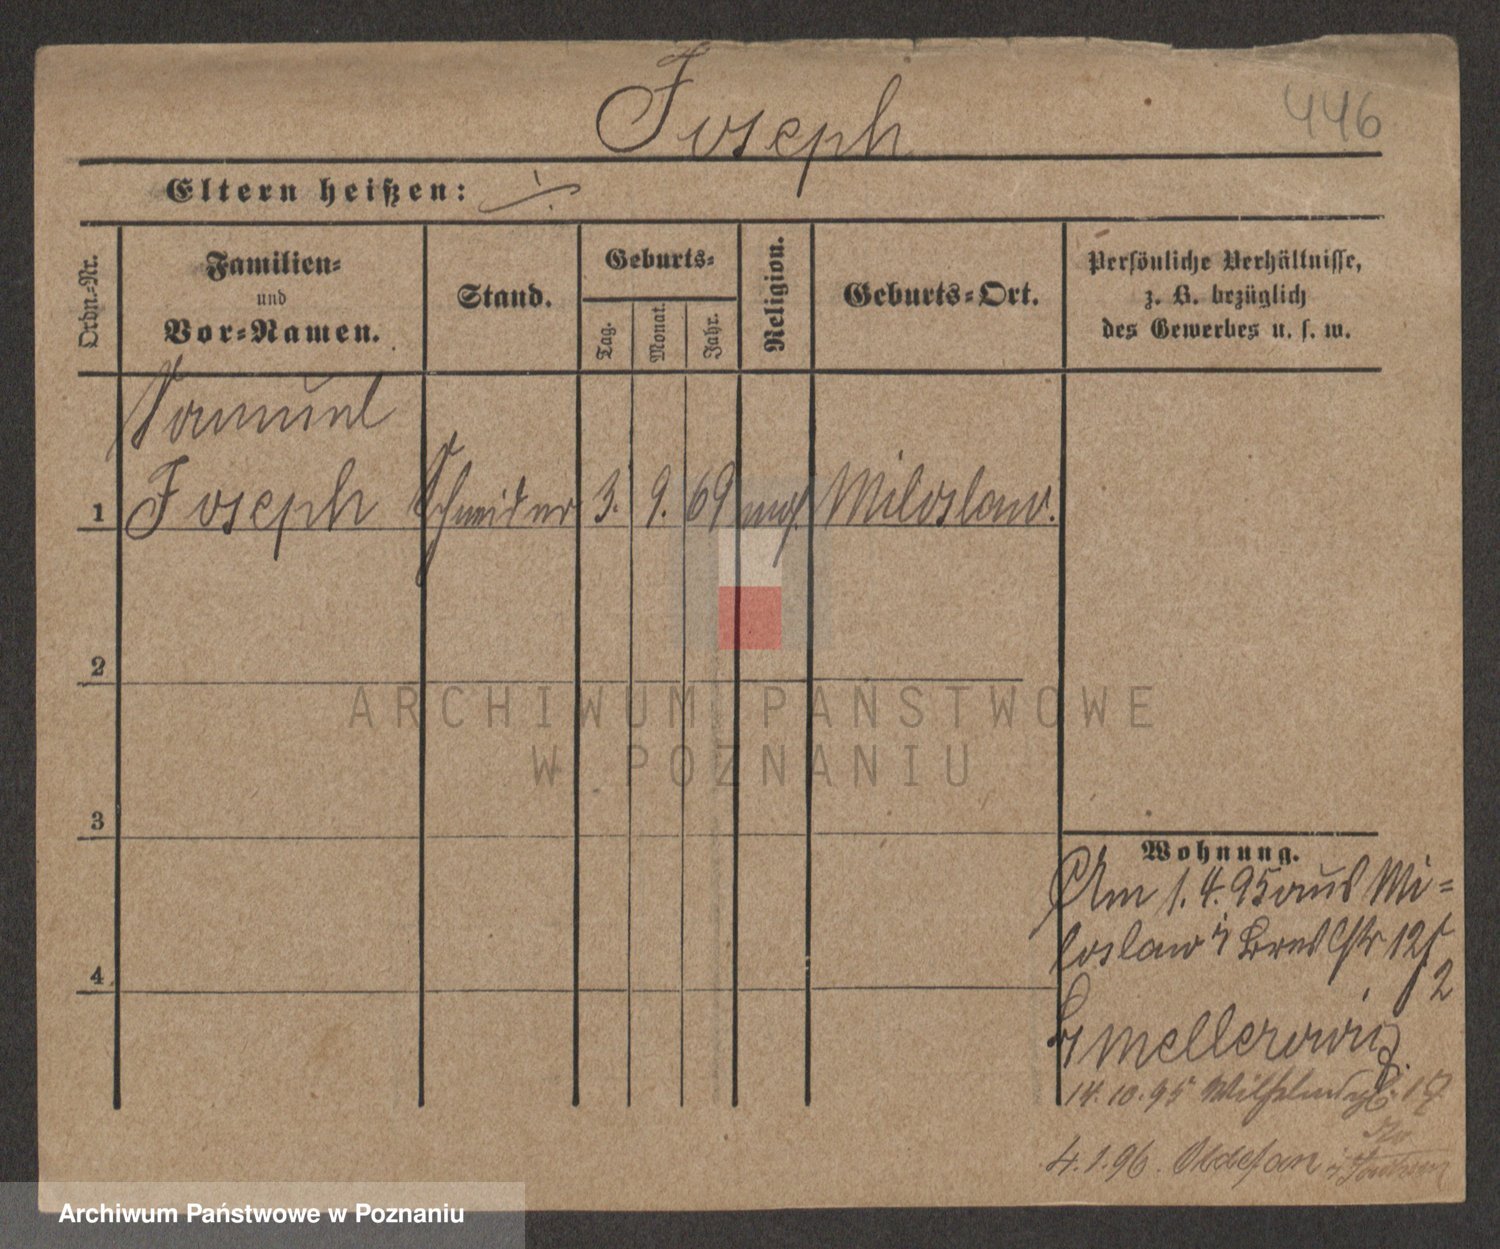 Joseph
446
Eltern heißen: ./.
Ordn.-Nr.
Familien-
und
Vor-Namen.
Stand.
Geburts-
Tag.
Monat.
Jahr.
Religion.
Geburts-Ort.
Persönliche Verhältnisse,
z. B. bezüglich
des Gewerbes u. s. w.
Samuel
1 Joseph Schneider 3. 9. 69 mos. Miloslaw.
2
3
4
Wohnung.
Am 1.4.95 aus Mi-
loslaw Bresl Str 12
2
Smellerowicz.
14.10.95 Wilhelm 17
4.1.96.
ARCHIWUM PAŃSTWOWE
W POZNANIU
Archiwum Państwowe w Poznaniu